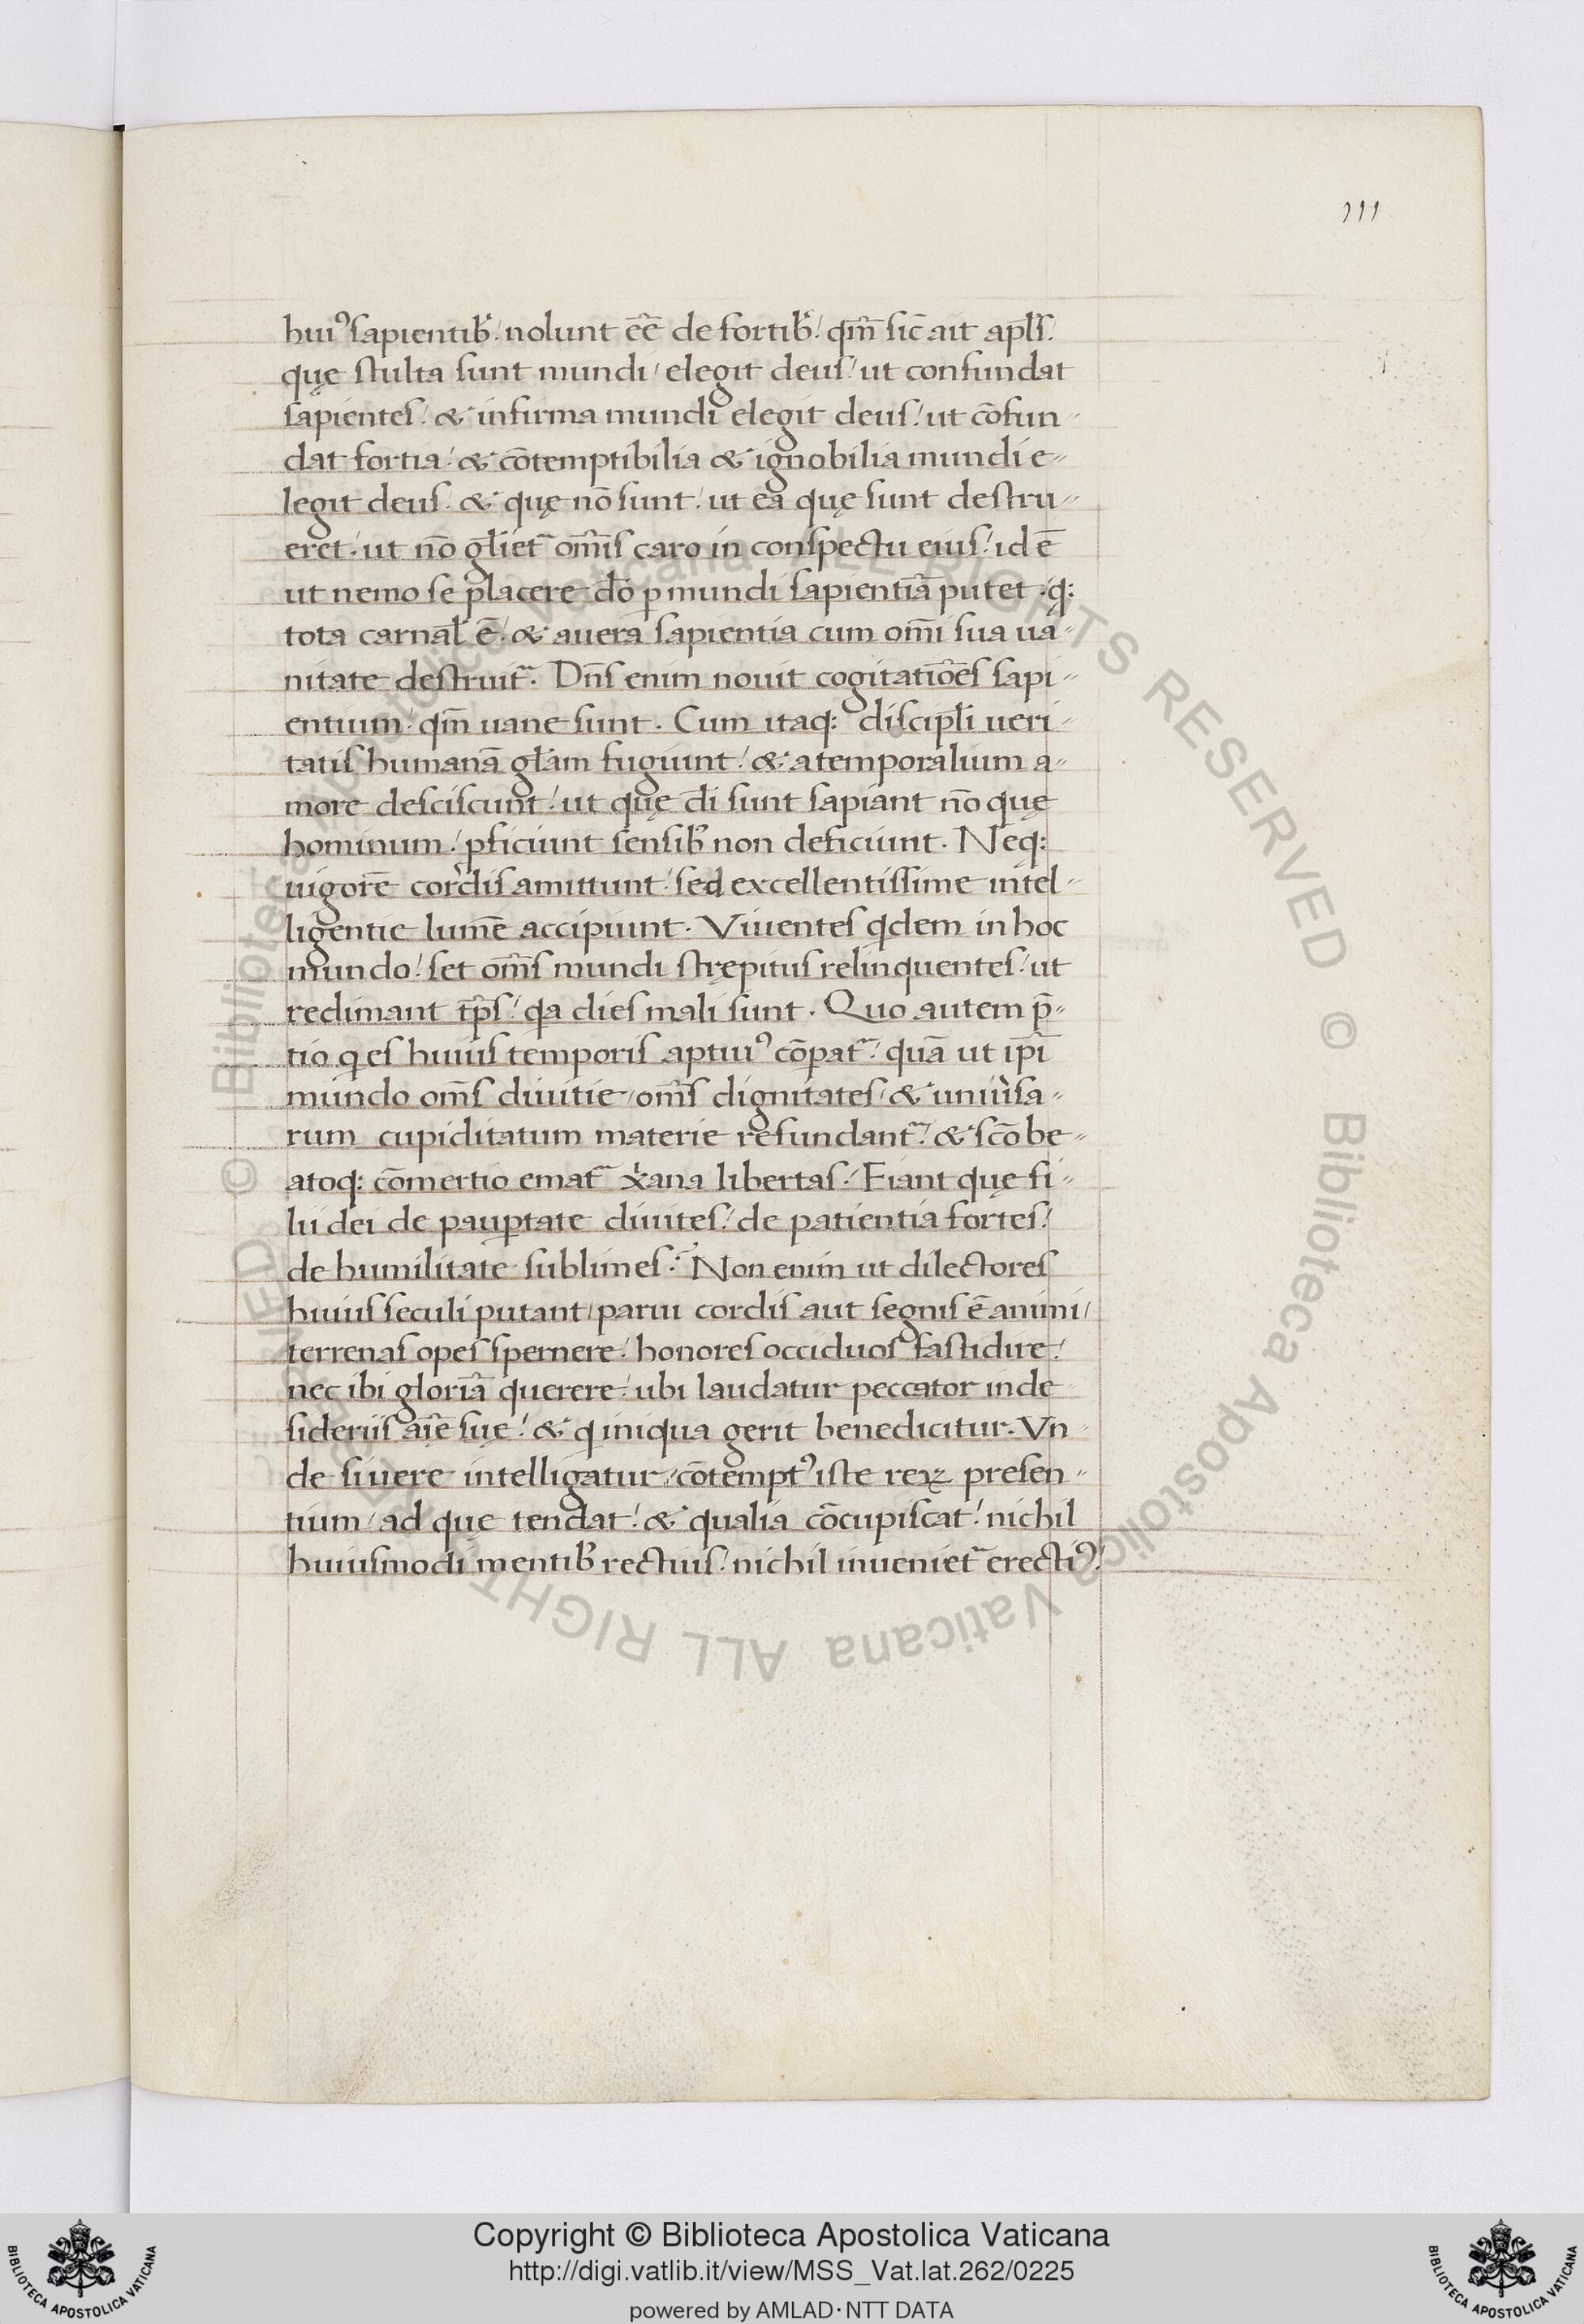 111
huiꝰ sapientibꝫ nolunt eē̄ de fortibꝫ qm̄ sic̄ ait apl̄s
quę stulta sunt mundi elegit deus ut confundat
sapientes & infirma mundi elegit deus ut cōfun-
dat fortia & cōtemptibilia & ignobilia mundi e-
legit deus & quę nō sunt ut ea quę sunt destru-
eret ut nō gl̄iet᷑ om̄is caro in conspectu eius id ē
ut nemo se placere dō ꝑ mundi sapientiā putet q:
tota carnal̄ ē & auera sapientia cum om̄i sua ua-
nitate destruit᷑. Dn̄s enim nouit cogitatiōēs sapi-
entium qm̄ uane sunt. Cum itaq: discipl̄i ueri-
tatis humanā gl̄am fugiunt & atemporalium a-
more desciscunt ut quę dī sunt sapiant nō quę
hominum ꝓficiunt sensibꝫ non deficiunt. Neq:
uigorē cordis amittunt sed excellentissime intel-
ligentie lumē accipiunt. Viuentes qdem in hoc
mundo set om̄s mundi strępitus relinquentes ut
redimant tp̄s qa dies mali sunt. Quo autem p̄-
tio q es huius temporis aptiuꝰ cōpat᷑ quā ut ip̄i
mundo om̄s diuitie om̄s dignitates & uniu᷑sa-
rum cupiditatum materie refundant᷑ & sc̄o be-
atoq: cōmertio emat᷑ xp̄ana libertas. Fiant quę fi-
lii dei de pauꝑtate diuites de patientia fortes
de humilitate sublimes. Non enim ut dilectores
huius seculi putant parui cordis aut segnis ē animi
terrenas opes spernere honores occiduos fastidire
nec ibi gloriā querere ubi laudatur peccator inde
sideriis aīę suę & q iniqua gerit benedicitur. Vn
de si uere intelligatur cōtemptꝰ iste reꝝ presen-
tium ad que tendat & qualia cōcupiscat nichil
huiusmodi mentibꝫ rectius nichil inueniet᷑ erectiꝰ
© Biblioteca Apostolica Vaticana ALL RIGHTS RESERVED © Biblioteca Apostolica Vaticana ALL RIGHTS RESERVED
BIBLIOTECA APOSTOLICA VATICANA
Copyright © Biblioteca Apostolica Vaticana
http://digi.vatlib.it/view/MSS_Vat.lat.262/0225
powered by AMLAD·NTT DATA
BIBLIOTECA APOSTOLICA VATICANA